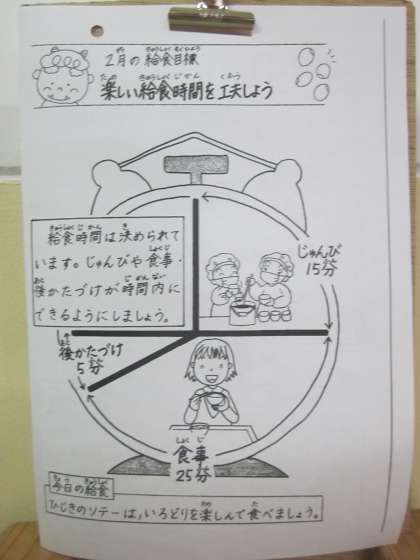 2月の給食目標
楽しい給食時間を工夫しよう
給食時間は決められて
います。じゅんびや食事・
後かたづけが時間内に
できるようにしましょう。
じゅんび
15分
後かたづけ
5分
食事
25分
今日の給食
ひじきのソテーは、いろどりを楽しんで食べましょう。